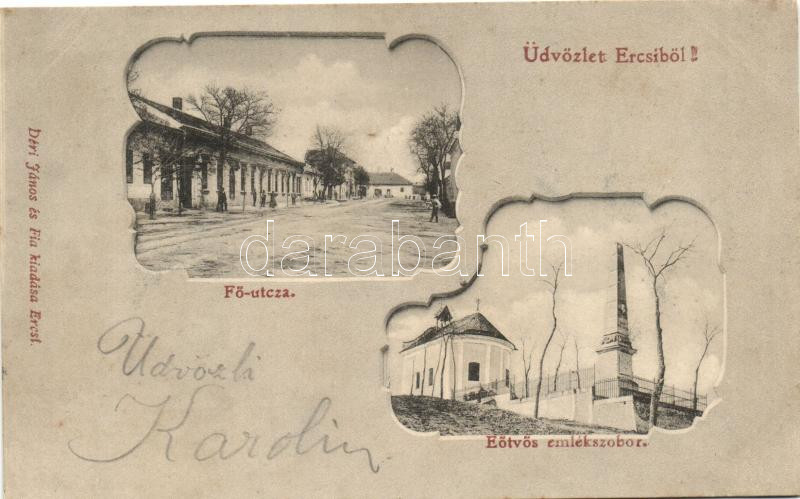 Üdvözlet Ercsiből!!!
Déri János és Fia kiadása Ercsi.
darabanth
Fő-utcza.
Eötvös emlékszobor.
Üdvözli
Karolin